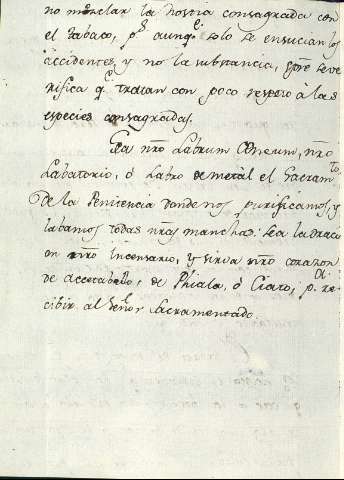 no mesclar la nostra consagrada con
el tabaco, p.s aunq.e solo se ensucian los
accidentes, y no la substancia, spre se ve
rifica q.e tratan con poco respeto à las
especies consagradas.
Sea nro Labrum Oneum, nro
Labatorio, ò Labro de metal el Sacram.to
De la Penitencia donde nos purificamos, y
labamos todas nras manchas: Sea la oraci
on nro incensario, y sirva nro corazon
de accetabello, de Phiala, ò Ciato, p.a re
cibir al Señor Sacramentado.